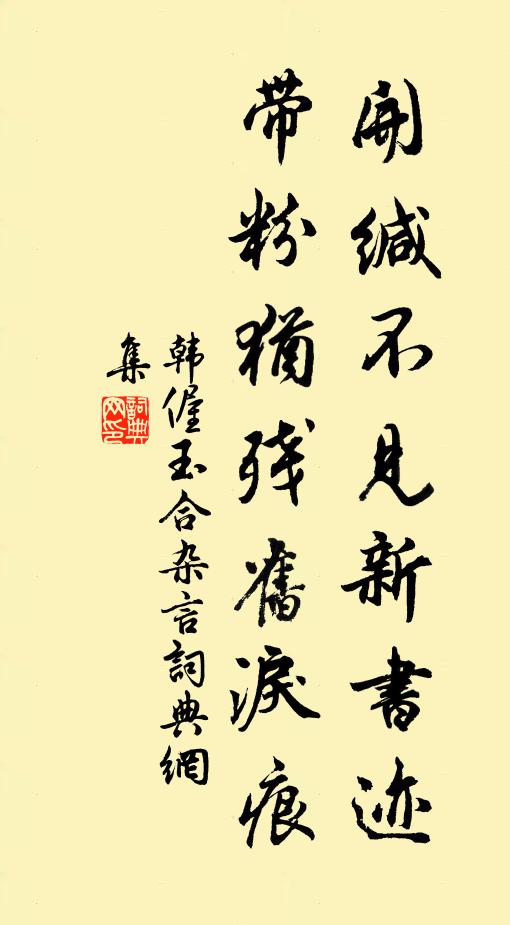 开缄不见新书迹
带粉犹残旧淚痕
韩偓玉合杂言詞典網
集
詞典网印